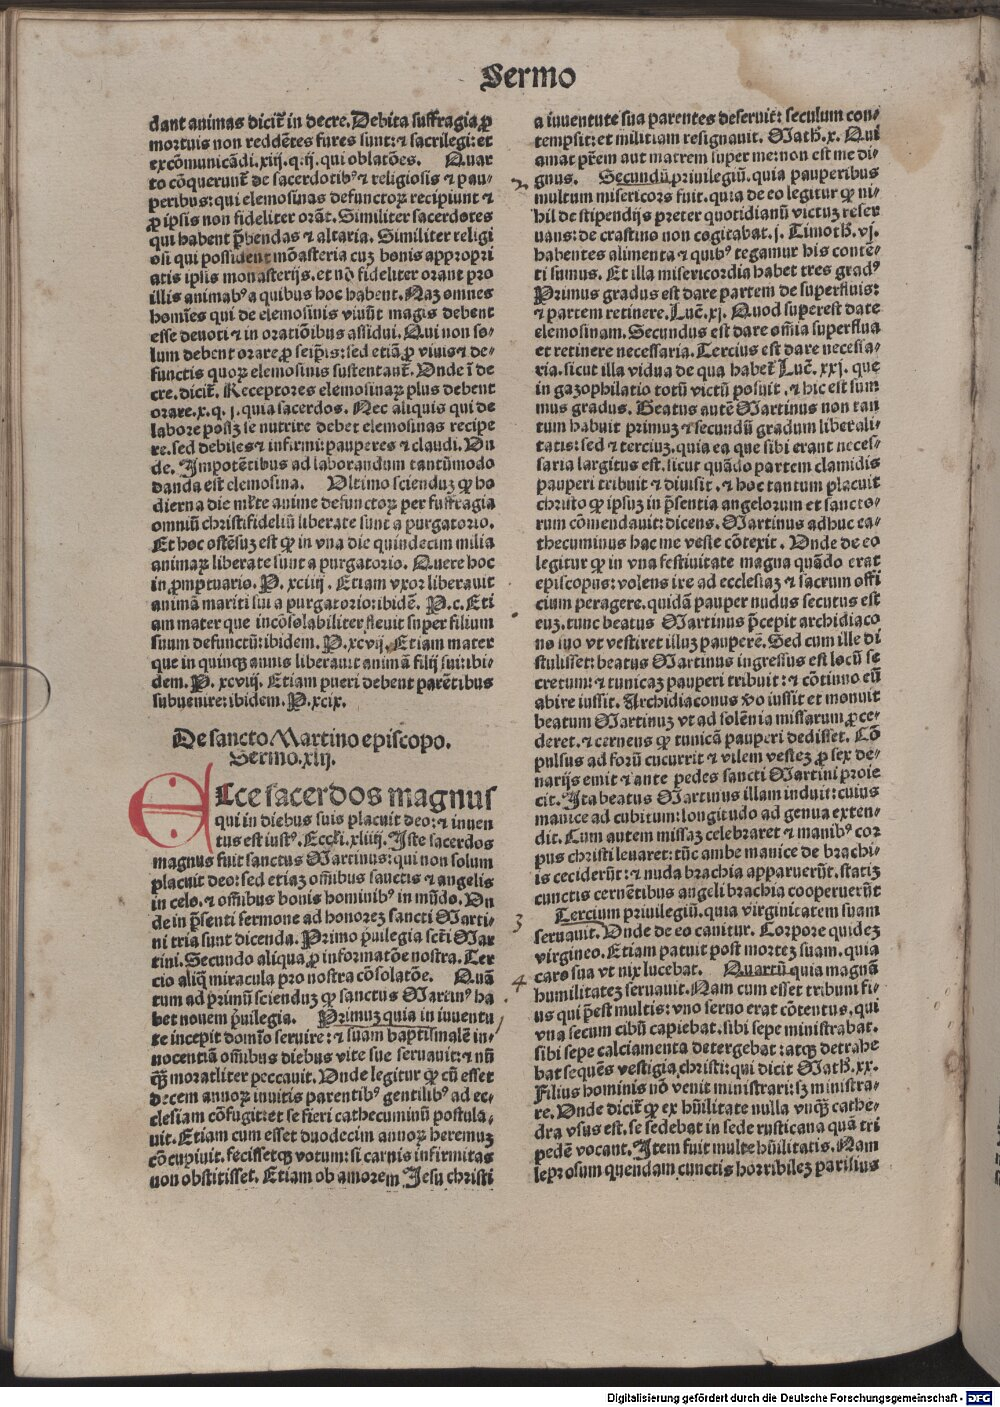 Sermo
dant animas dicit̃ in decre. Debita suffragia ꝓ
mortuis non reddẽtes fures sunt: ⁊ sacrilegi: et
excõmunicãdi. xiij. q. ij. qui oblatões. Quar
to cõquerunt̃ de sacerdotibꝰ ⁊ religiosis ⁊ pau-
peribus: qui elemosinas defunctoꝝ recipiunt ⁊
ꝓ ipsis non fideliter orãt. Similiter sacerdotes
qui habent p̃bendas ⁊ altaria. Similiter religi
osi qui possident mõasteria cuꝫ bonis appropri
atis ipsis monasterijs. et nõ fideliter orant pro
illis animabꝰ a quibus hoc habent. Naꝫ omnes
homĩes qui de elemosinis viuũt magis debent
esse deuoti ⁊ in oratiõibus assidui. Qui non so-
lum debent orare ꝓ seip̃is: sed etiã ꝓ viuis ⁊ de-
functis quoꝝ elemosinis sustentant̃. Vnde ĩ de
cre. dicit̃. Receptores elemosinaꝝ plus debent
orare. x. q. j. quia sacerdos. Nec aliquis qui de
labore possꝫ se nutrire debet elemosinas recipe
re. sed debiles ⁊ infirmi: pauperes ⁊ claudi. Vn
de. Impotẽtibus ad laborandum tantũmodo
danda est elemosina. Vltimo scienduꝫ ꝙ ho
dierna die mĩte anime defunctoꝝ per suffragia
omniũ christifideliũ liberate sunt a purgatorio.
Et hoc ostẽsuꝫ est ꝙ in vna die quindecim milia
animaꝝ liberate sunt a purgatorio. Quere hoc
in ꝓmptuario. P. xciiij. Etiam vxor liberauit
animã mariti sui a purgatorio: ibidẽ. P. c. Eti
am mater que incõsolabiliter fleuit super filium
suum defunctũ: ibidem. P. xcvij. Etiam mater
que in quinqꝫ annis liberauit animã filij sui: ibi-
dem. P. xcviij. Etiam pueri debent parẽtibus
subuenire: ibidem. P. xcix.
De sancto Martino episcopo.
Sermo. xiij.
Ecce sacerdos magnus
qui in diebus suis placuit deo: ⁊ inuen
tus est iustꝰ. Eccł̃i. xliiij. Iste sacerdos
magnus fuit sanctus Martinus: qui non solum
placuit deo: sed etiaꝫ oĩnibus sanctis ⁊ angelis
in celo. ⁊ oĩnibus bonis hominibꝰ in mũdo. Vn
de in p̃senti sermone ad honoreꝫ sancti Marti-
ni tria sunt dicenda. Primo p̃uilegia scti Mar
tini. Secundo aliqua ꝓ informatõe nostra. Ter
cio aliq̃ miracula pro nostra cõsolatõe. Quã
tum ad primũ sciendum ꝙ sanctus Martinꝰ ha
bet nouem p̃uilegia. Primuꝫ quia in iuuentu
te incepit domĩo seruire: ⁊ suam baptismalẽ in-
nocentiã oĩnibus diebus vite sue seruauit: ⁊ nũ
qꝫ̃ mortaliter peccauit. Vnde legitur ꝙ cũ esset
decem annoꝝ inuitis parentibꝰ gentilibꝰ ad ec-
clesiam cõfugit: et se fieri cathecuminũ postula-
uit. Etiam cum esset duodecim annoꝝ heremuꝫ
cõcupiuit. fecissetqꝫ votum: si carnis infirmitas
non obstitisset. Etiam ob amorem Jesu christi
a iuuentute sua parentes deseruit: seculum con-
tempsit: et militiam resignauit. Math. x. Qui
amat p̃em aut matrem super me: non est me di-
2 gnus. Secundũ priuilegiũ. quia pauperibus
multum misericors fuit. quia de eo legitur ꝙ ni-
hil de stipendijs preter quotidianũ victuꝫ reser
uans: de crastino non cogitabat. j. Timoth. vj.
habentes alimenta ⁊ quibꝰ tegamur his contẽ-
ti sumus. Et illa misericordia habet tres gradꝰ
Primus gradus est dare partem de superfluis:
⁊ partem retinere. Luc̃. xj. Quod superest date
elemosinam. Secundus est dare oĩnia superflua
et retinere necessaria. Tercius est dare necessa-
ria. sicut illa vidua de qua habet̃ Luc̃. xxj. que
in gazophilatio totũ victũ posuit. ⁊ hic est sum
mus gradus. Beatus autẽ Martinus non tan
tum habuit primuꝫ ⁊ secundũ gradum liberali-
tatis: sed ⁊ terciuꝫ. quia ea que sibi erant neces-
saria largitus est. sicut quãdo partem clamidis
pauperi tribuit ⁊ diuisit. ⁊ hoc tantum placuit
christo ꝙ ipsuꝫ in p̃sentia angelorum et sancto-
rum cõmendauit: dicens. Martinus adhuc ca-
thecuminus hac me veste cõtexit. Vnde de eo
legitur ꝙ in vna festiuitate magna quãdo erat
episcopus: volens ire ad ecclesiaꝫ ⁊ sacrum offi
cium peragere. quidã pauper nudus secutus est
euꝫ. tunc beatus Martinus p̃cepit archidiaco
no suo vt vestiret illuꝫ pauperẽ. Sed cum ille di
stulisset: beatus Martinus ingressus est locũ se
cretum: ⁊ tunicaꝫ pauperi tribuit: ⁊ cõtinuo eũ
abire iussit. Archidiaconus ṽo iussit et monuit
beatum Martinuꝫ vt ad solẽnia missarum ꝓce-
deret. ⁊ cernens ꝙ tunicã pauperi dedisset. Cõ
pulsus ad forũ cucurrit ⁊ vilem vesteꝫ ꝓ sex de-
narijs emit ⁊ ante pedes sancti Martini proie
cit. Ita beatus Martinus illam induit: cuius
manice ad cubitum: longitudo ad genua exten-
dit. Cum autem missaꝫ celebraret ⁊ manibꝰ cor
pus christi leuaret: tũc ambe manice de brachi-
is ceciderũt: ⁊ nuda brachia apparuerũt. statiꝫ
cunctis cernẽtibus angeli brachia cooperuerũt
3 Tercium priuilegiũ. quia virginitatem suam
seruauit. Vnde de eo canitur. Corpore quideꝫ
virgineo. Etiam patuit post morteꝫ suam. quia
caro sua vt nix lucebat. Quartũ quia magnã
4 humilitateꝫ seruauit. Nam cum esset tribuni fi-
us qui p̃est multis: vno seruo erat cõtentus. qui
vna secum cibũ capiebat. sibi sepe ministrabat.
sibi sepe calciamenta detergebat: atqꝫ detrahe
bat sequẽs vestigia christi: qui dicit Math. xx.
Filius hominis nõ venit ministrari: sꝫ ministra-
re. Vnde dicit̃ ꝙ ex hũilitate nulla vnqꝫ̃ cathe-
dra vsus est. se sedebat in sede rusticana quã tri
pedẽ vocant. Item fuit multe hũilitatis. Nam
leprosum quendam cunctis horribileꝫ parisius
Digitalisierung gefördert durch die Deutsche Forschungsgemeinschaft - DFG